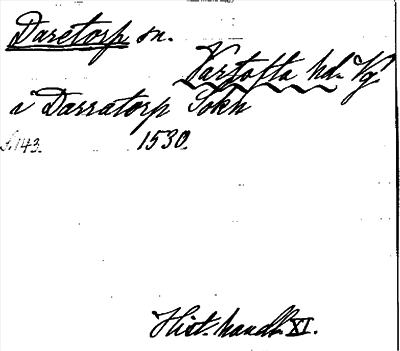 Daretorp sn.
Vartofta hd. Vg.
a Darratorp Sokn
S. 143. 1530.
Hist. handl. XI.